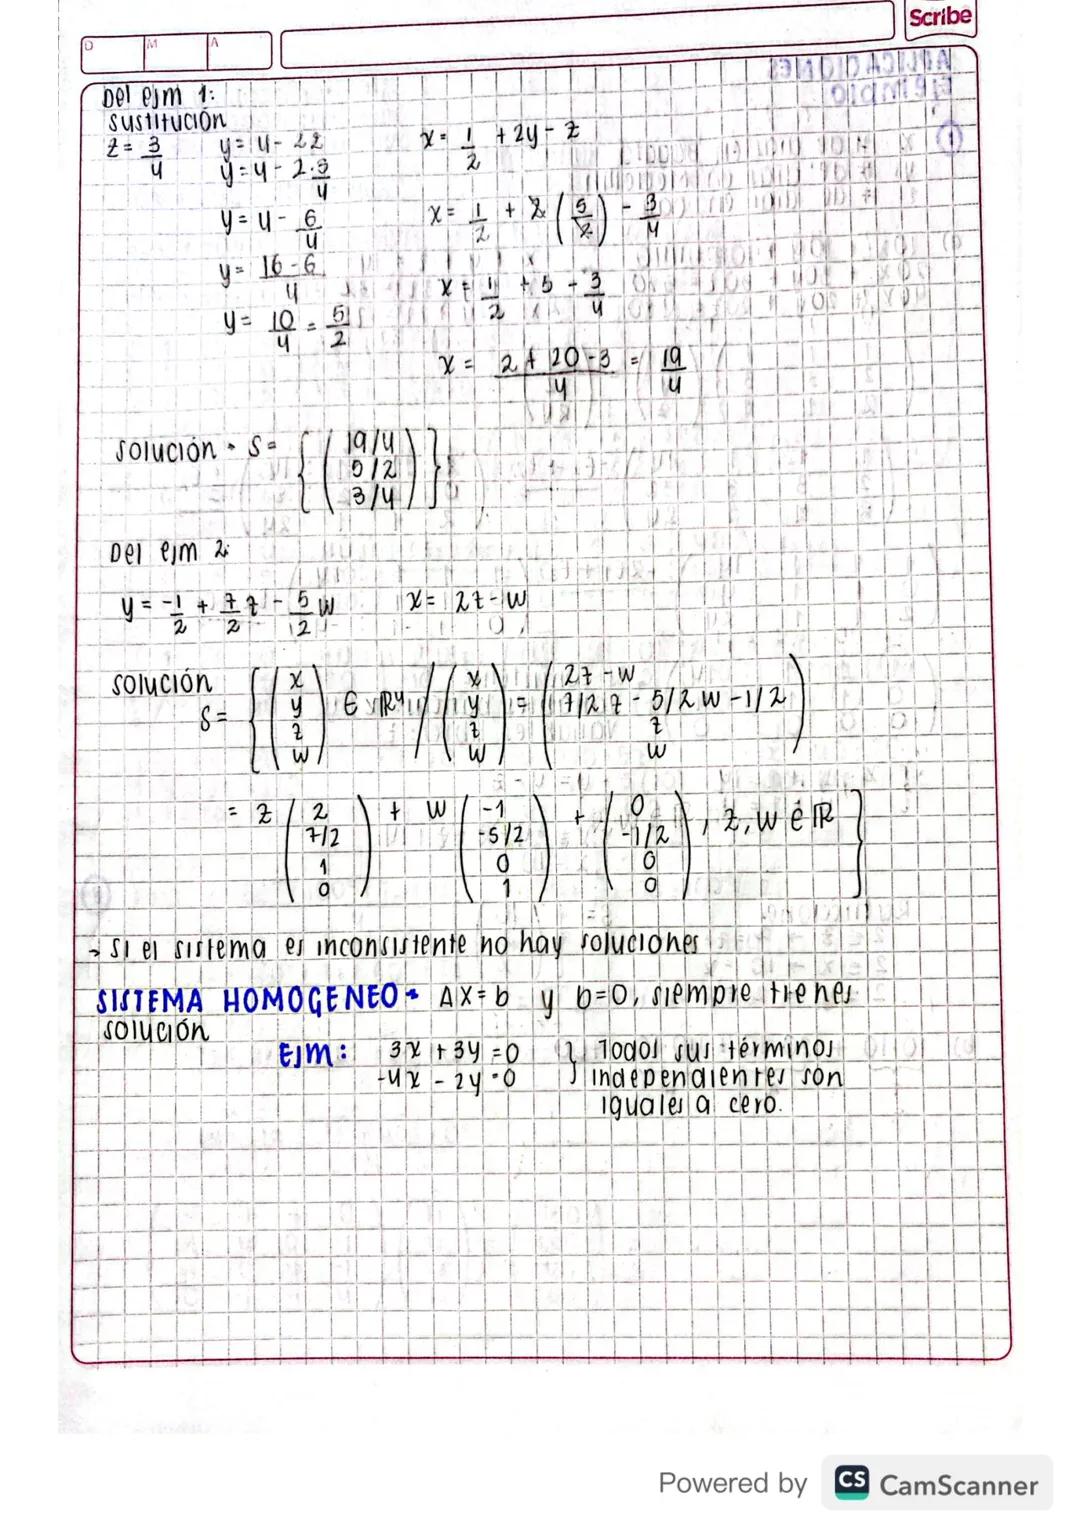 Scribe
D M A
Del ejm 1:
sustitución
z = 3/4 y = 4 - 2z x = 1/2 + 2y - z
y = 4 - 2·3/4
y = 4 - 6/4 x = 1/2 + 2(5/2) - 3/4
y = 16-6/4 x = 1/2 + 5 - 3/4
y = 10/4 = 5/2
x = 2 + 20 - 3/4 = 19/4
solución • S = { ( 19/4
5/2
3/4 ) }
Del ejm 2:
y = -1/2 + 7/2 z - 5/2 w x = 2z - w
solución
S = { ( x y z w ) ∈ R⁴ / ( x y z w ) = ( 2z - w
7/2 z - 5/2 w - 1/2
z
w )
= z ( 2 7/2 1 0 ) + w ( -1 -5/2 0 1 ) + ( 0 -1/2 0 0 ) , z, w é R }
→ si el sistema es inconsistente no hay soluciones
SISTEMA HOMOGENEO • AX = b y b=0, siempre tienes
solución
EJM: 3x + 3y = 0 } Todos sus términos
-4x - 2y = 0 independientes son
iguales a cero.
Powered by CS CamScanner